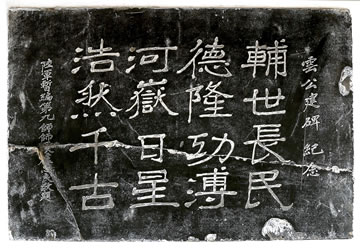 雲公遺碑紀念
輔世長民
德隆功溥
河嶽日星
浩然千古
陸軍暫編第九師師